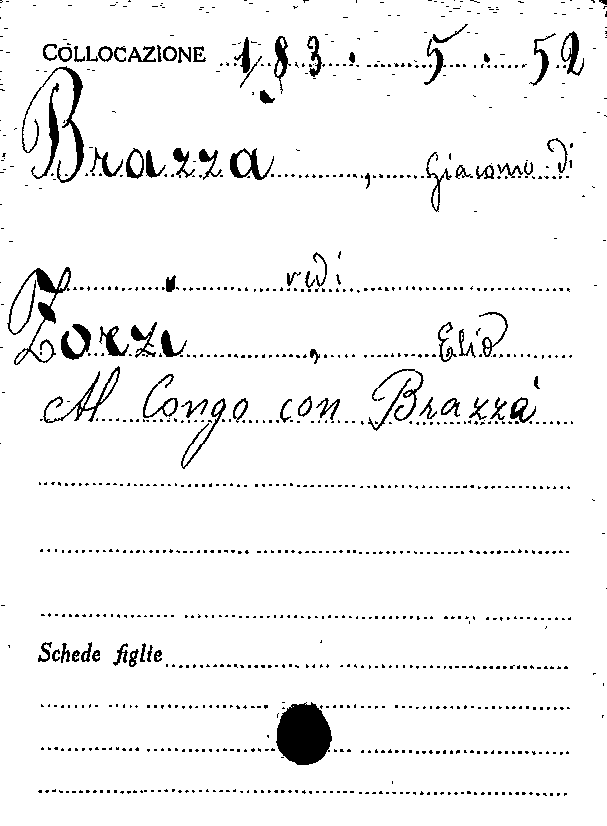 COLLOCAZIONE 183. 5. 52
Brazzà, Giacomo di
vedi
Zorzi, Elio
Al Congo con Brazzà
Schede figlie